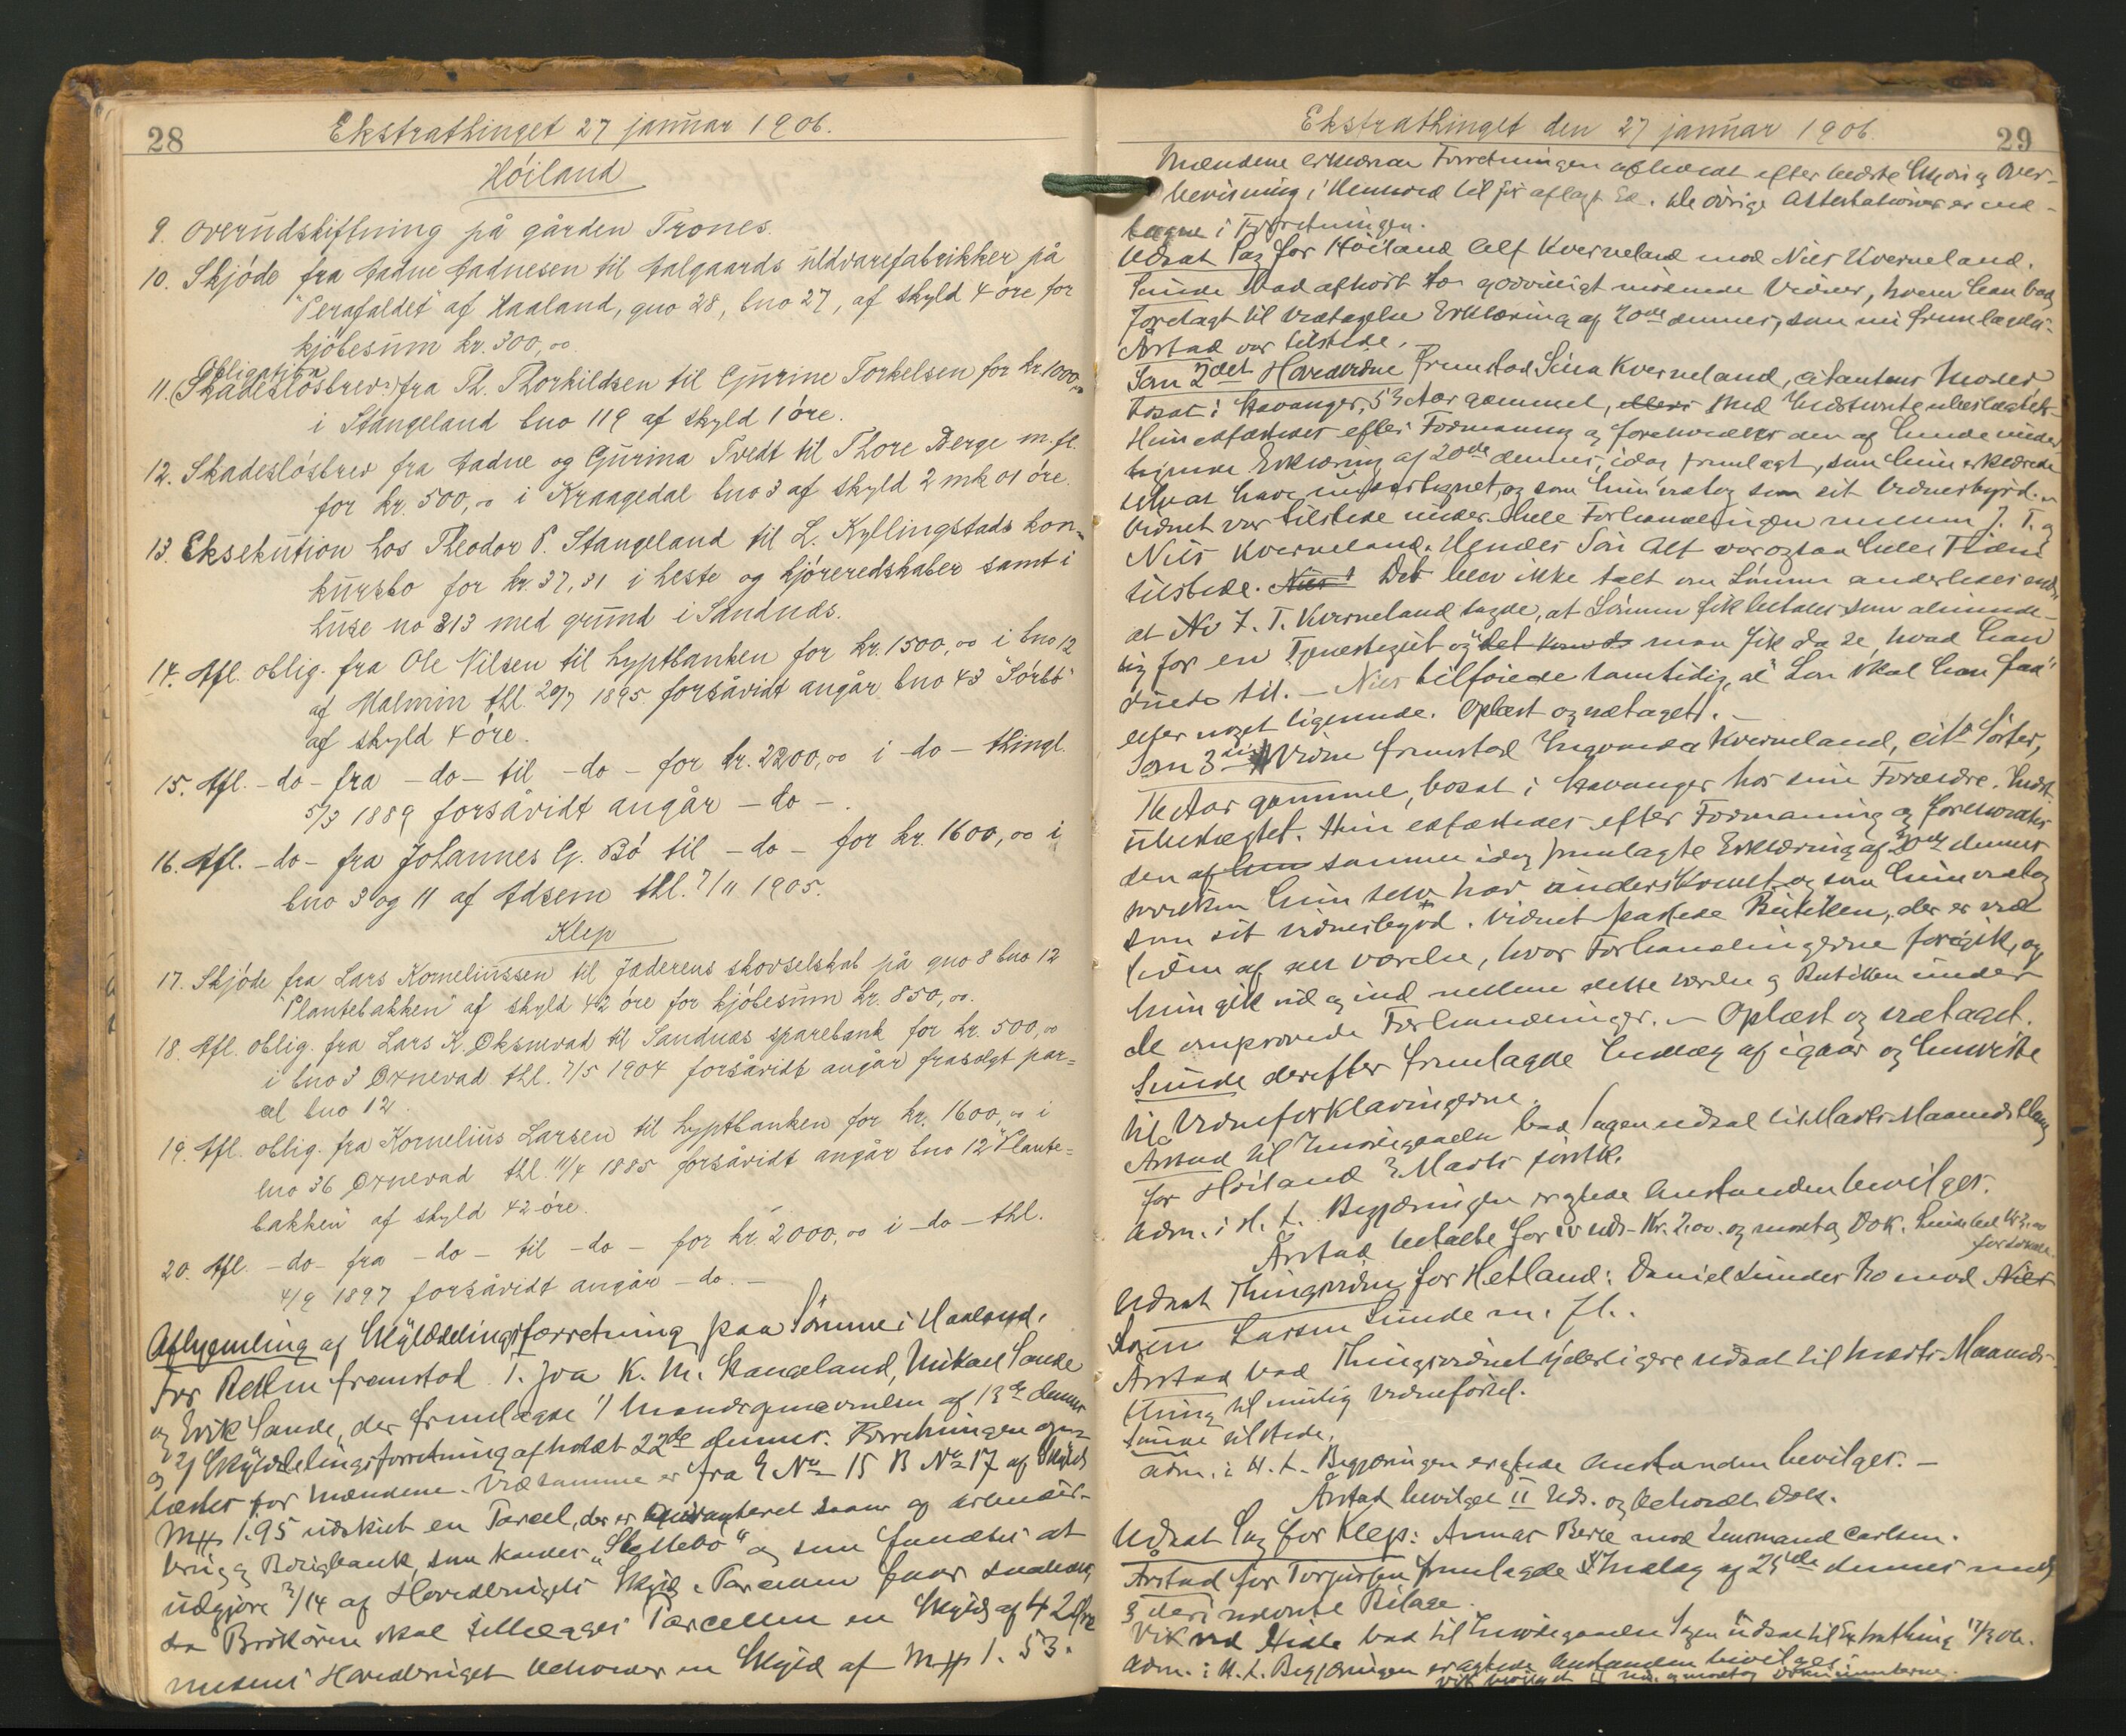 28
Ekstrathinget 27 januar 1906.
Höiland
9. Overudskiftning på gården Trones.
10. Skjöde fra Aadne Aadnesen til Aalgaards uldvarefabrikker på
"Perafaldet" af Haaland, gno 28, bno 27, af skyld 4 öre for
kjöbesum kr. 300,00
Obligation
11. (Skadeslösbrev?) fra Th. Thorkildsen til Gurine Torkelsen for kr 1000,00
i Stangeland bno 119 af skyld 1 öre.
12. Skadeslösbrev fra Aadne og Gurina Tvedt til Thore Berge m.fl.
for kr. 500,00 i Kraagedal bno 3 af skyld 2 mk 01 öre.
13. Eksekution hos Theodor P. Stangeland til L. Kyllingstads kon-
kursbo for kr. 37,31 i heste og kjöreredskaber samt i
huse no 313 med grund i Sandnæs.
14. Afl. oblig. fra Ole Nilsen til hyptbanken for kr. 1500,00 i bno 12
af Malmin thl. 20/7 1895 forsåvidt angår bno 43 "Sörbö"
af skyld 4 öre.
15. Afl. - do - fra - do - til - do - for kr. 2200,00 i - do - thingl.
5/3 1889 forsåvidt angår - do - .
16. Afl. - do - fra Johannes G. Bö til - do - for kr. 1600,00 i
bno 3 og 11 af Adsem thl. 7/11 1905.
Klep
17. Skjöde fra Lars Korneliussen til Jæderens skovselskab på gno 8 bno 12
"Plantebakken" af skyld 42 öre for kjöbesum kr. 850,00.
18. Afl. oblig. fra Lars K. Øksnevad til Sandnæs sparebank for kr. 500,00
i bno 3 Øxnevad thl. 7/5 1904 forsåvidt angår frasolgt par=
cel bno 12.
19. Afl. oblig. fra Kornelius Larsen til hyptbanken for kr. 1600,00 i
bno 36 Øxnevad thl. 11/4 1885 forsåvidt angår bno 12 "Plante=
bakken" af skyld 42 öre.
20. Afl. - do - fra - do - til - do - for kr 2000,00 i - do - thl.
4/9 1897 forsåvidt angår - do. -
Afhjemling af Skylddelingsforretning paa Sömme i Haaland.
For Retten fremstod T. Joa K. M. Stangeland, Mikael Sande
og Erik Sande, der fremlagde 1) Mandsopnævnelsen af 13de dennes
og 2) Skylddelingsforretning afholdt 22de dennes. Forretningen op-
læstes for Mændene. Ved samme er fra G No 15 B No 17 af Skyld
Mk 1.95 udskilt en Parcel, der er
som kaldes "Slettebö" og som fandtes at
udgjöre 3/14 af Hovedbrugets Skyld. Parcellen
da Brökören skal tillægges Parcellen en Skyld af 42 Öre
medens Hovedbruget beholder en Skyld af Mk 1.53.
Ekstrathinget den 27 januar 1906.
29
Mændene erklærede Forretningen afholdt efter bedste Skjön og Over-
bevisning i Henhold til för aflagt Ed. De övrige Attestationer er ind-
tagne i Forretningen.
Udsat Sag for Höiland Alf Kverneland mod Nils Kverneland.
Sunde bad afhört to godvilligt mödende Vidner, hvem han bad
forelagt til Vedtagelse Erklæring af 20de dennes, som nu fremlagdes.
Årstad var tilstede.
Som 2det Hovedvidne fremstod Sina Kverneland, citantens Moder,
bosat i Stavanger, 53 Aar gammel, med Indstevnte ubeslægtet.
Hun edfæstedes efter Formaning og foreholdtes den af hende under
Erklæring af 20de dennes, idag fremlagt, som hun erklærede
selv at have undertegnet, og som hun vedtog som sit Vidnesbyrd. -
Vidnet var tilstede under hele Forhandlingen mellem J. T. og
Nils Kverneland. Hendes Sön Alf var ogsaa hele Tiden
tilstede. Det blev ikke talt om Lönnen anderledes end
at J. T. Kverneland sagde, at Lönnen fik betales som alminde-
lig for en Tjenestegut og man fik da se, hvad han
duede til. - Nils tilföiede samtidig, at "Lön skal han faa"
eller noget lignende. Oplæst og vedtaget. -
Som 3die Vidne fremstod Ingvanda Kverneland, cits Söster,
16 Aar gammel, bosat i Stavanger hos sine Forældre. Indst.
ubeslægtet. Hun edfæstedes efter Formaning og foreholdtes
den samme idag fremlagte Erklæring af 20de dennes
hvilken hun selv har underskrevet og som hun vedtog
som sit Vidnesbyrd. Vidnet passede Butikken, der er ved
Siden af det Værelse, hvor Forhandlingerne foregik, og
hun gik ud og ind mellem dette Værelse og Butikken under
de omprovede Forhandlinger. - Oplæst og vedtaget.
Sunde derefter fremlagde Indlæg af igaar og henviste
til Vidneforklaringerne.
Årstad til Imödegaaelse bad Sagen udsat til Marts Maaneds Thing
for Höiland 3 Marts förstk.
Adm. i H. t. Begjæringen ergtede Anstanden bevilges.
Årstad betalte for Uds. Kr. 2,00. og modtog Dok.
Udsat Thingsvidne for Hetland: Daniel Sundes bo mod
Sören Larsen Sunde m. fl..
Årstad bad Thingsvidnet yderligere udsat til Marts Maaneds
thing til mulig Vidneförsel.
Sunde tilstede.
Adm. i H. t. Begjæringen eragtede Anstanden bevilges. -
Årstad bevilget II Uds. og beholdt Dok.
Udsat Sag for Klep: Annas Berre mod Lensmand Carlsen.
Årstad for Torjussen fremlagde Indlæg af 25de dennes med
3 deri nævnte Bilage.
Vik ved Hidle bad til Imödegaaelse Sagen udsat til Extrathing 17/3 06.
Adm. i H. t. Begjæringen eragtede Anstanden bevilges.